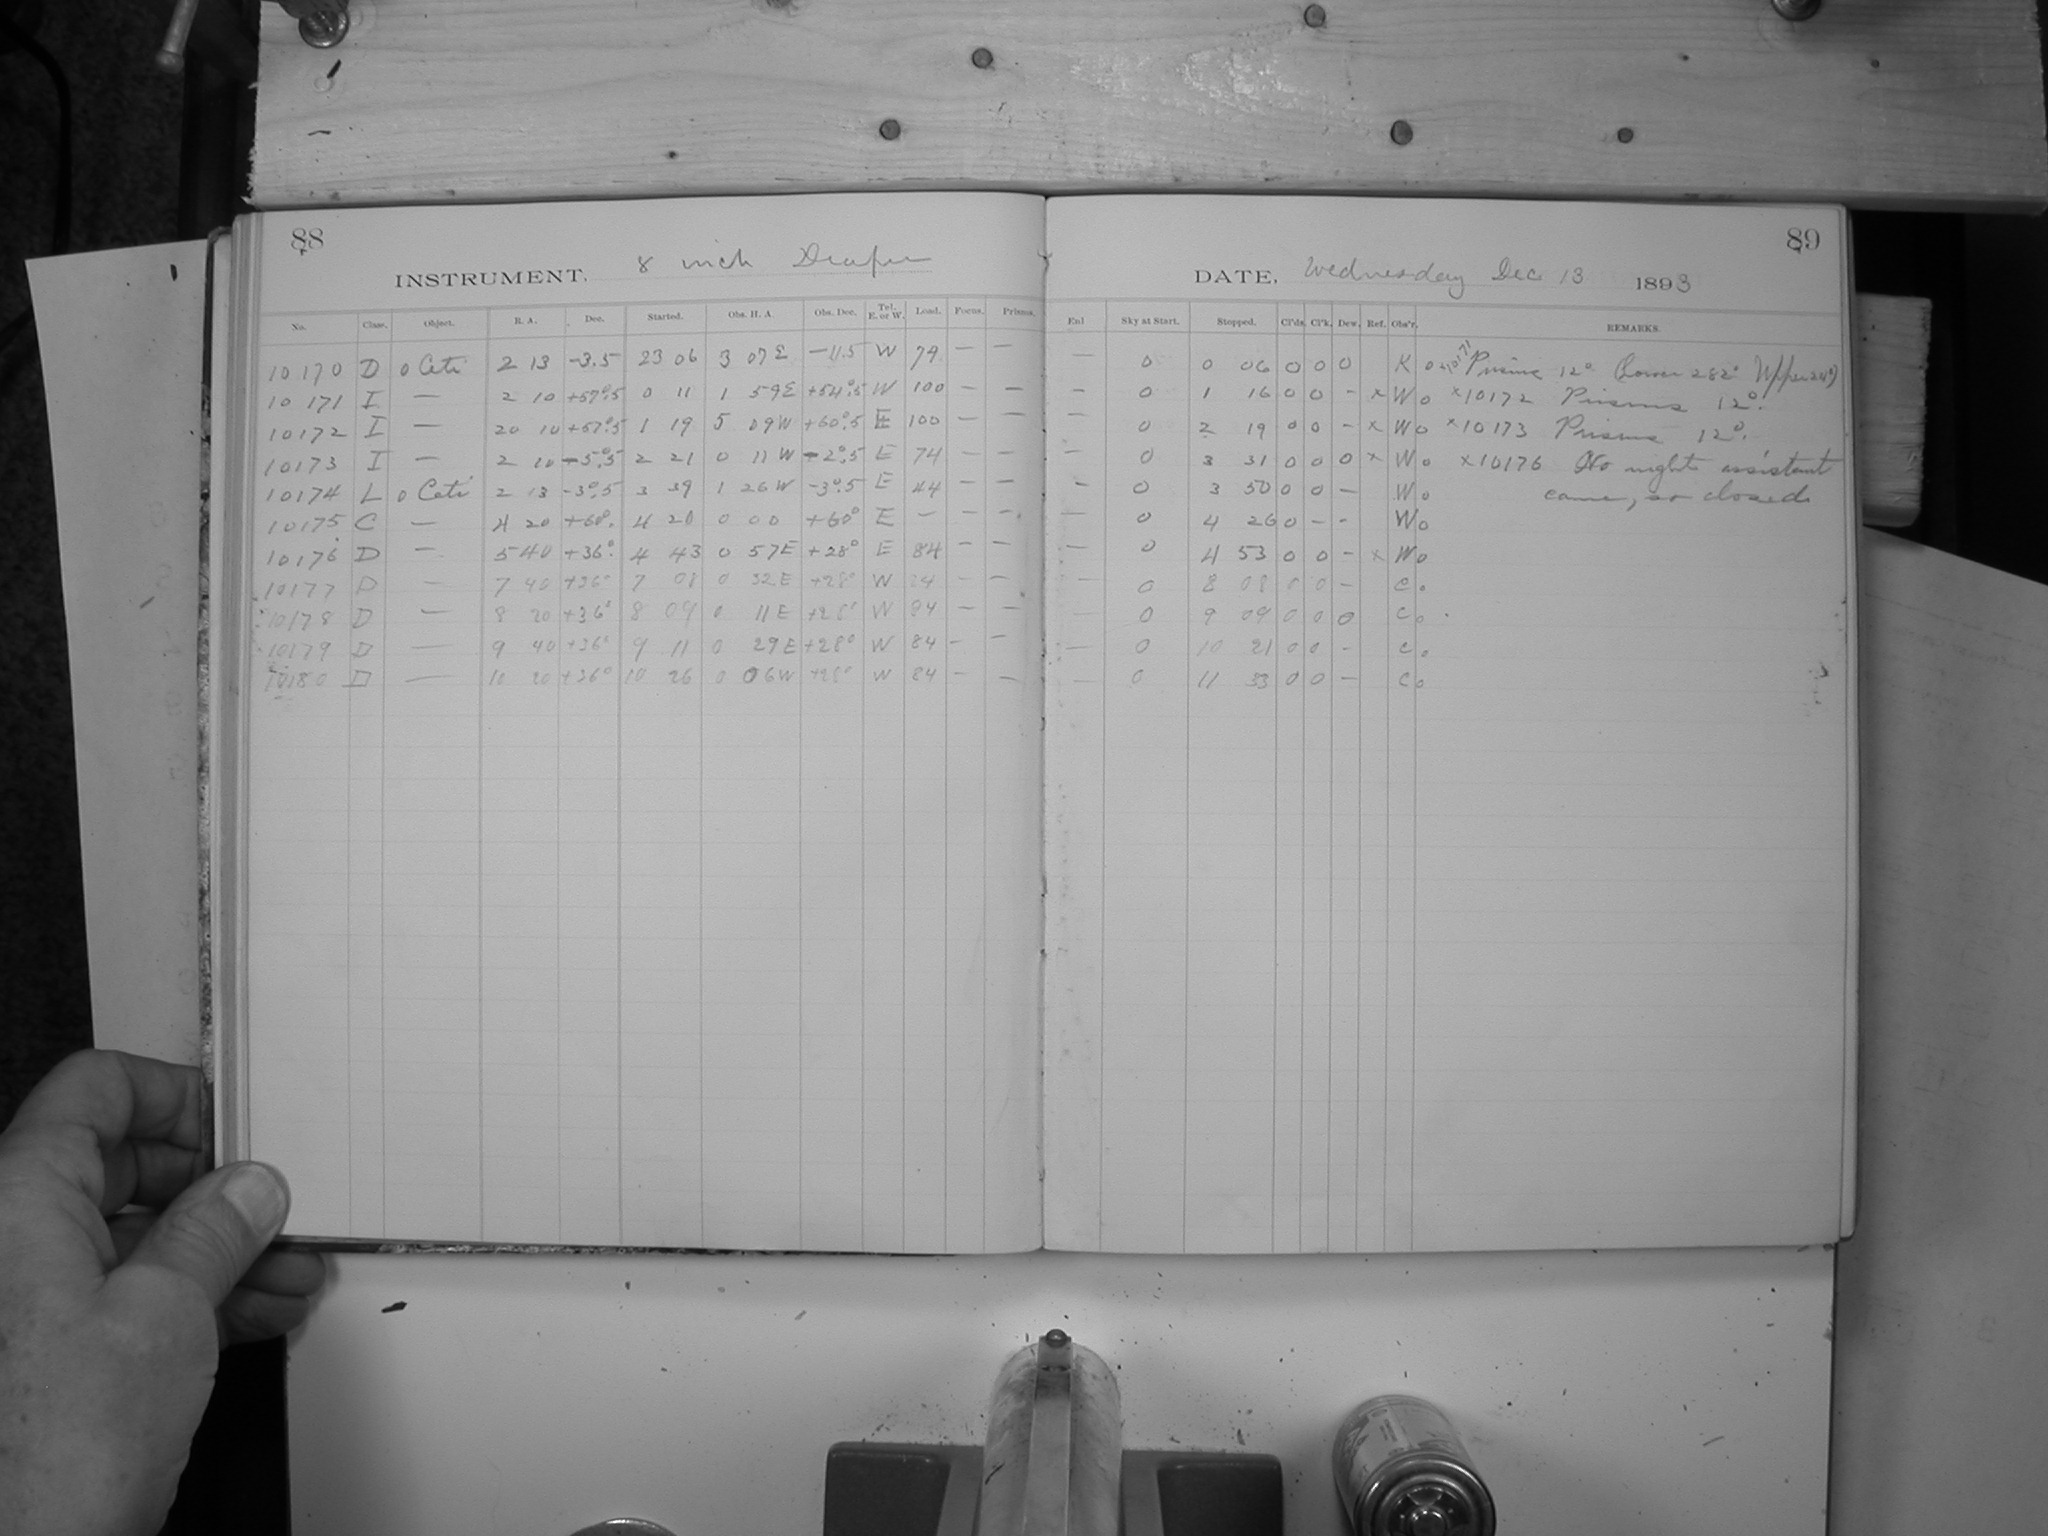 88
INSTRUMENT. 8 inch Draper
No. Class. Object. R. A. Dec. Started. Obs. H. A. Obs. Dec. Tel. E. or W. Load. Focus. Prisms.
10170 D o Ceti 2 13 -3.5 23 06 3 07 E -11.5 W 79 — —
10171 I — 2 10 +57°.5 0 11 1 59 E +54°.5 W 100 — —
10172 I — 20 10 +57°.5 1 19 5 09 W +60°.5 E 100 — —
10173 I — 2 10 -5°.5 2 21 0 11 W -2°.5 E 74 — —
10174 L o Ceti 2 13 -3°.5 3 39 1 26 W -3°.5 E 44 — —
10175 C — 4 20 +60°. 4 20 0 00 +60° E — — —
10176 D — 5 40 +36°. 4 43 0 57 E +28° E 84 — —
10177 D — 7 40 +36° 7 08 0 32 E +28° W 84 — —
10178 D — 8 20 +36° 8 09 0 11 E +28° W 84 — —
10179 D — 9 40 +36° 9 11 0 29 E +28° W 84 — —
10180 D — 10 20 +36° 10 26 0 06 W +28° W 84 — —
89
DATE, Wednesday Dec 13 1893
Enl Sky at Start. Stopped. Cl'ds. Cl'k. Dew. Ref. Obs'r. REMARKS.
— 0 0 06 0 0 0 K o Prisms 12° (Lower 282° Upper 24°)
— 0 1 16 0 0 - x Wo x10172 Prisms 12°.
— 0 2 19 0 0 - x Wo x10173 Prisms 12°.
— 0 3 31 0 0 0 x Wo x10176 No night assistant
— 0 3 50 0 0 — Wo came, so closed
— 0 4 26 0 - - Wo
— 0 4 53 0 0 - x Wo
— 0 8 08 0 0 - Co
0 9 09 0 0 0 Co
— 0 10 21 0 0 - Co
— 0 11 33 0 0 — Co